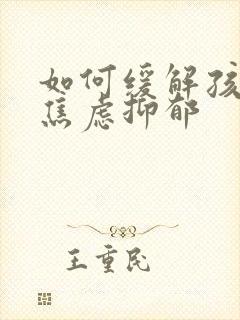 如何缓解孩
焦虑抑郁
王重民